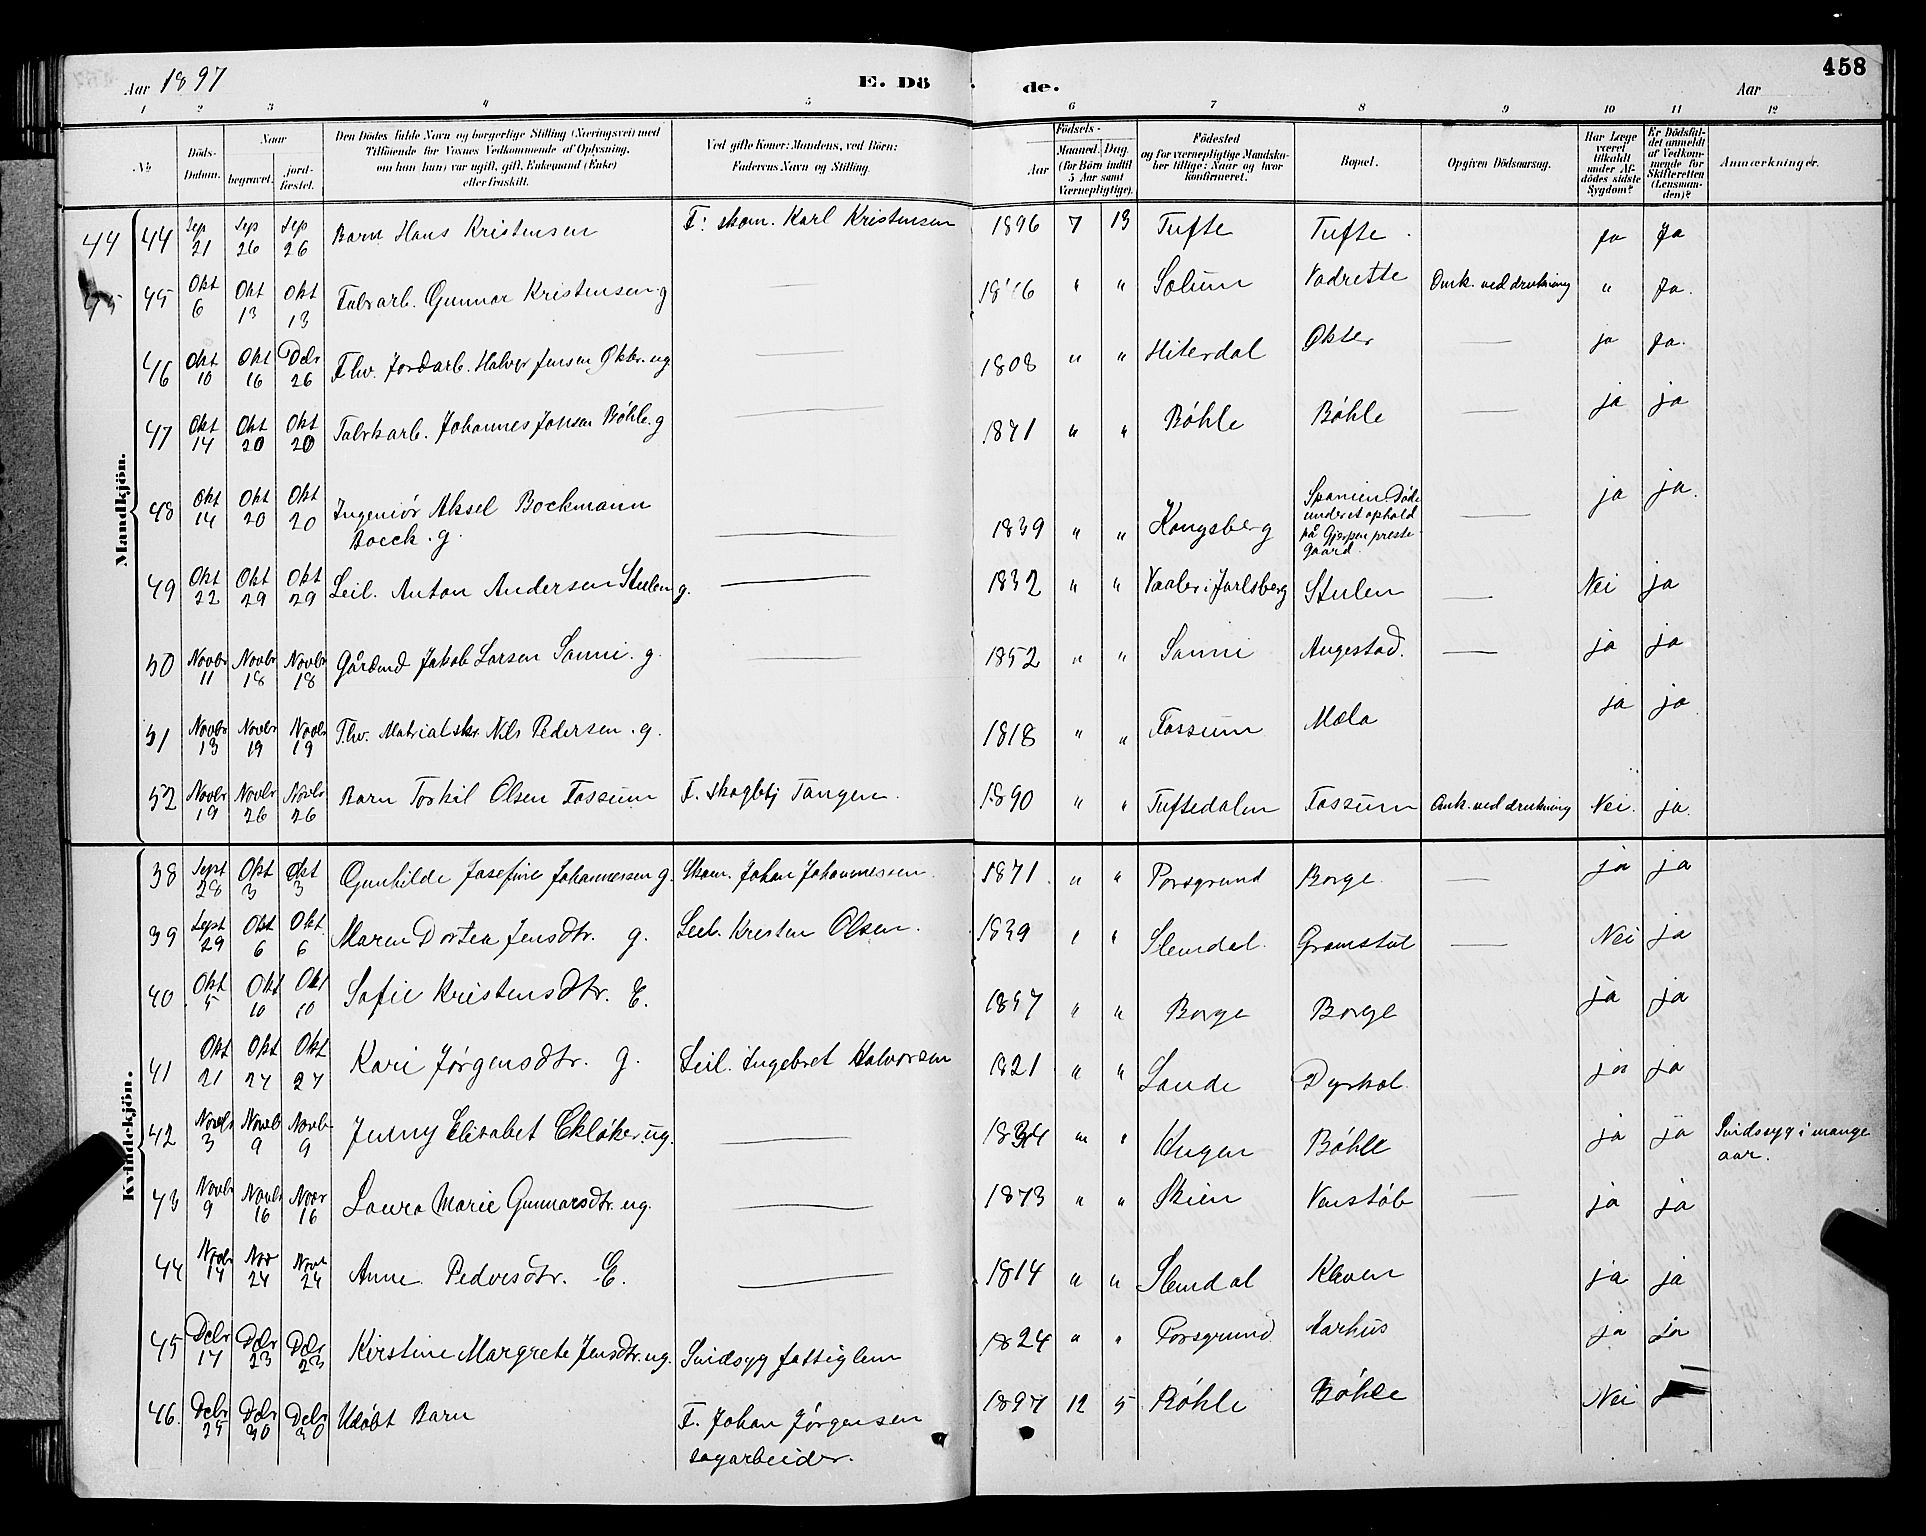 458
Aar 1897 E. Dö de. Aar
1 2 3 4 5 6 7 8 9 10 11 12
No. Döds-Datum. Naar begravet. jordfæstet. Den Dödes fulde Navn og borgerlige Stilling (Næringsvei) med Tilföiende for Voxnes Vedkommende af Oplysning, om han (hun) var ugift, gift, Enkemand (Enke) eller fraskilt. Ved gifte Koner: Mandens, ved Börn: Faderens Navn og Stilling. Födsels- Aar Maaned. Dag. (for Börn indtil 5 Aar samt Værnepligtige). Födested og for værnepligtige Mandskaber tillige: Naar og hvor konfirmeret. Bopæl. Opgiven Dödsaarsag. Har Læge været tilkaldt under Afdödes sidste Sygdom? Er Dödsfaldet anmeldt af Vedkommende for Skifteretten (Lensmanden)? Anmærkninger.
Mandkjön.
44 44 Sep 21 Sep 26 Sep 26 Barn Hans Kristensen F: skom. Karl Kristensen 1896 7 13 Tufte Tufte Ja Ja
45 45 Okt 6 Okt 13 Okt 13 Fabrarb. Gunnar Kristensen g — " " Solum Vadrette Omk. ved drukning " Ja.
46 Okt 10 Okt 16 Dcbr 26 Fhv. Jordarb. Halvor Jensen Okter. ug. — 1808 " " Hiterdal Okter — ja Ja.
47 Okt 14 Okt 20 Okt 20 Fabrkarb. Johannes Jonsen Bøhle. g — 1871 " " Bøhle Bøhle — ja ja
48 Okt 14 Okt 20 Okt 20 Ingeniør Aksel Bockmann
Boeck. g. — 1839 " " Kongsberg Spanien. Døde under et ophold på Gjerpen prestegaard. — ja ja.
49 Okt 22 Okt 29 Okt 29 Leil. Anton Andersen Stulen g. — 1832 " " Vaaler i Jarlsberg Stulen — Nei ja
50 Novbr 11 Novbr 18 Novbr 18 Gårdmd Jakob Larsen Sanni. g. — 1852 " " Sanni Augestad. — ja ja
51 Novbr 13 Novbr 19 Novbr 19 Fhv. Matrialskr. Nils Pedersen. g. 1818 " " Fossum Mæla ja ja
52 Novbr 19 Novbr 26 Novbr 26 Barn Toskil Olsen Fossum F. skogbtj Tangen. 1890 " " Tuftedalen Fossum Omk. ved drukning Nei. ja.
Kvindekjön.
38 Sept 28 Okt 3 Okt 3 Gunhilde Josefine Johannessen g. Skom. Johan Johannessen. 1871. " " Porsgrund Borge — ja ja
39 Sept 29 Okt 6 Okt 6 Maren Dortea Jensdtr. g. Leil. Kristen Olsen. 1839 " " Slemdal. Gromstul — Nei ja
40 Okt 5 Okt 10 Okt 10 Sofie Kristensdtr. E. " " Borge Borge ja ja
41 Okt 21 Okt 27 Okt 27 Kari Jørgensdtr. g. Leil. Ingebret Halvorsen 1821 " " Sande Dyrkol. ja ja
42 Novbr 3 Novbr 9 Novbr 9 Jenny Elisabet Ekløker. ug. — " " Haugen Bøhle ja ja Sindssyg i mange
aar.
43 Novbr 9 Novbr 16 Novbr 16 Laura Marie Gunnarsdtr. ug. — 1873 " " Skien Venstøb — ja ja
44 Novbr 14 Nov 24 Novbr 24 Anne Pedersdtr. E. — 1814 " " Slemdal Kleven ja ja
45 Dcbr 17 Dcbr 23 Dcbr 23 Kirstine Margrete Jensdtr. ug. Sindsyg fattiglem 1824 " " Porsgrund Aarhus ja ja
46. Dcbr 25 Dcbr 30 Dcbr 30 Udøbt Barn F. Johan Jørgensen
sagarbeider. 1897 12 5 Bøhle Bøhle Nei